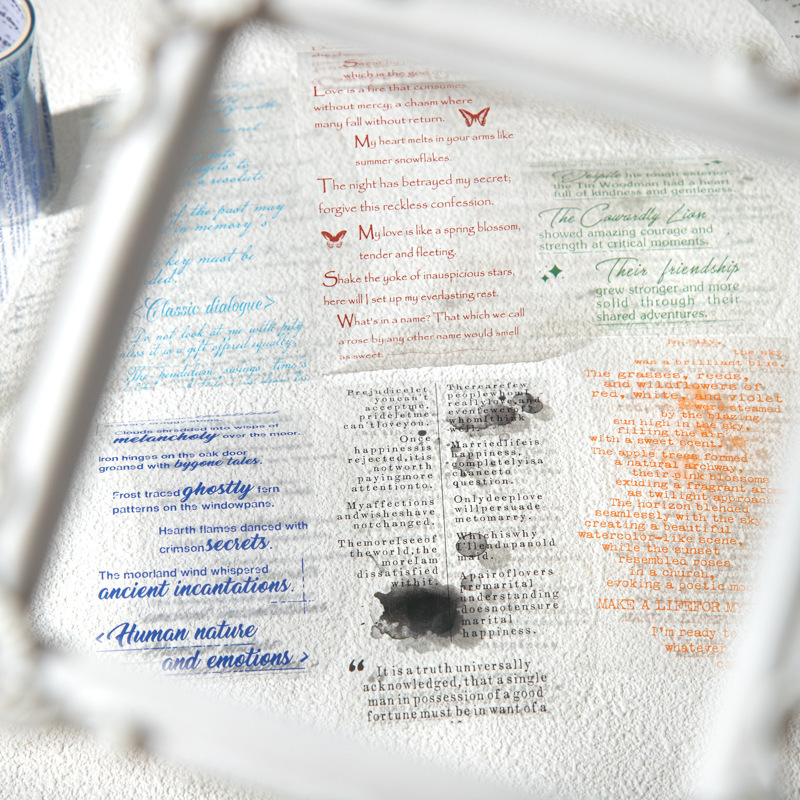 of the past may
in memory's
key must be
<Classic dialogue>
Do not look at me with pity,
miss it is a gift offred equally.
which in the
Love is a fire that consumes
without mercy; a chasm where
many fall without return.
My heart melts in your arms like
summer snowflakes.
The night has betrayed my secret;
forgive this reckless confession.
My love is like a spring blossom,
tender and fleeting.
Shake the yoke of inauspicious stars,
here will I set up my everlasting rest.
What's in a name? That which we call
a rose by any other name would smell
as sweet.
Despite his tough exterior
the Tin Woodman had a heart
full of kindness and gentleness.
The Cowardly Lion
showed amazing courage and
strength at critical moments.
Their friendship
grew stronger and more
solid through their
shared adventures.
Clouds shredded into wisps of
melancholy over the moor.
Iron hinges on the oak door
groaned with bygone tales.
Frost traced ghostly fern
patterns on the windowpans.
Hearth flames danced with
crimson secrets.
The moorland wind whispered
ancient incantations.
<Human nature
and emotions>
Prejudice let
you can't
accept me,
pride let me
can't love you.
Once
happiness is
rejected, it is
not worth
paying more
attention to.
My affections
and wishes have
not changed.
The more I see of
the world, the
more I am
dissatisfied
with it.
There are few
people who I
really love, and
even fewer
whom I
Married life is
happiness,
completely is a
chance to
question.
Only deep love
will persuade
me to marry.
Which is why
I'll end up an old
maid.
A pair of lovers
premarital
understanding
does not ensure
marital
happiness.
“ It is a truth universally
acknowledged, that a single
man in possession of a good
fortune must be in want of a
the sky
was a brilliant blue.
The grasses, reeds,
and wildflowers of
red, white, and violet
were steamed
by the blazing
sun high in the sky,
filling the air
with a sweet scent.
The apple trees formed
a natural archway,
their pink blossoms
exuding a fragrant
as twilight approac
The horizon blended
seamlessly with the sky
creating a beautiful
watercolor-like scene,
while the sunset
resembled roses
in a church,
evoking a poetic
MAKE A LIFE FOR M
I'm ready to
whatever